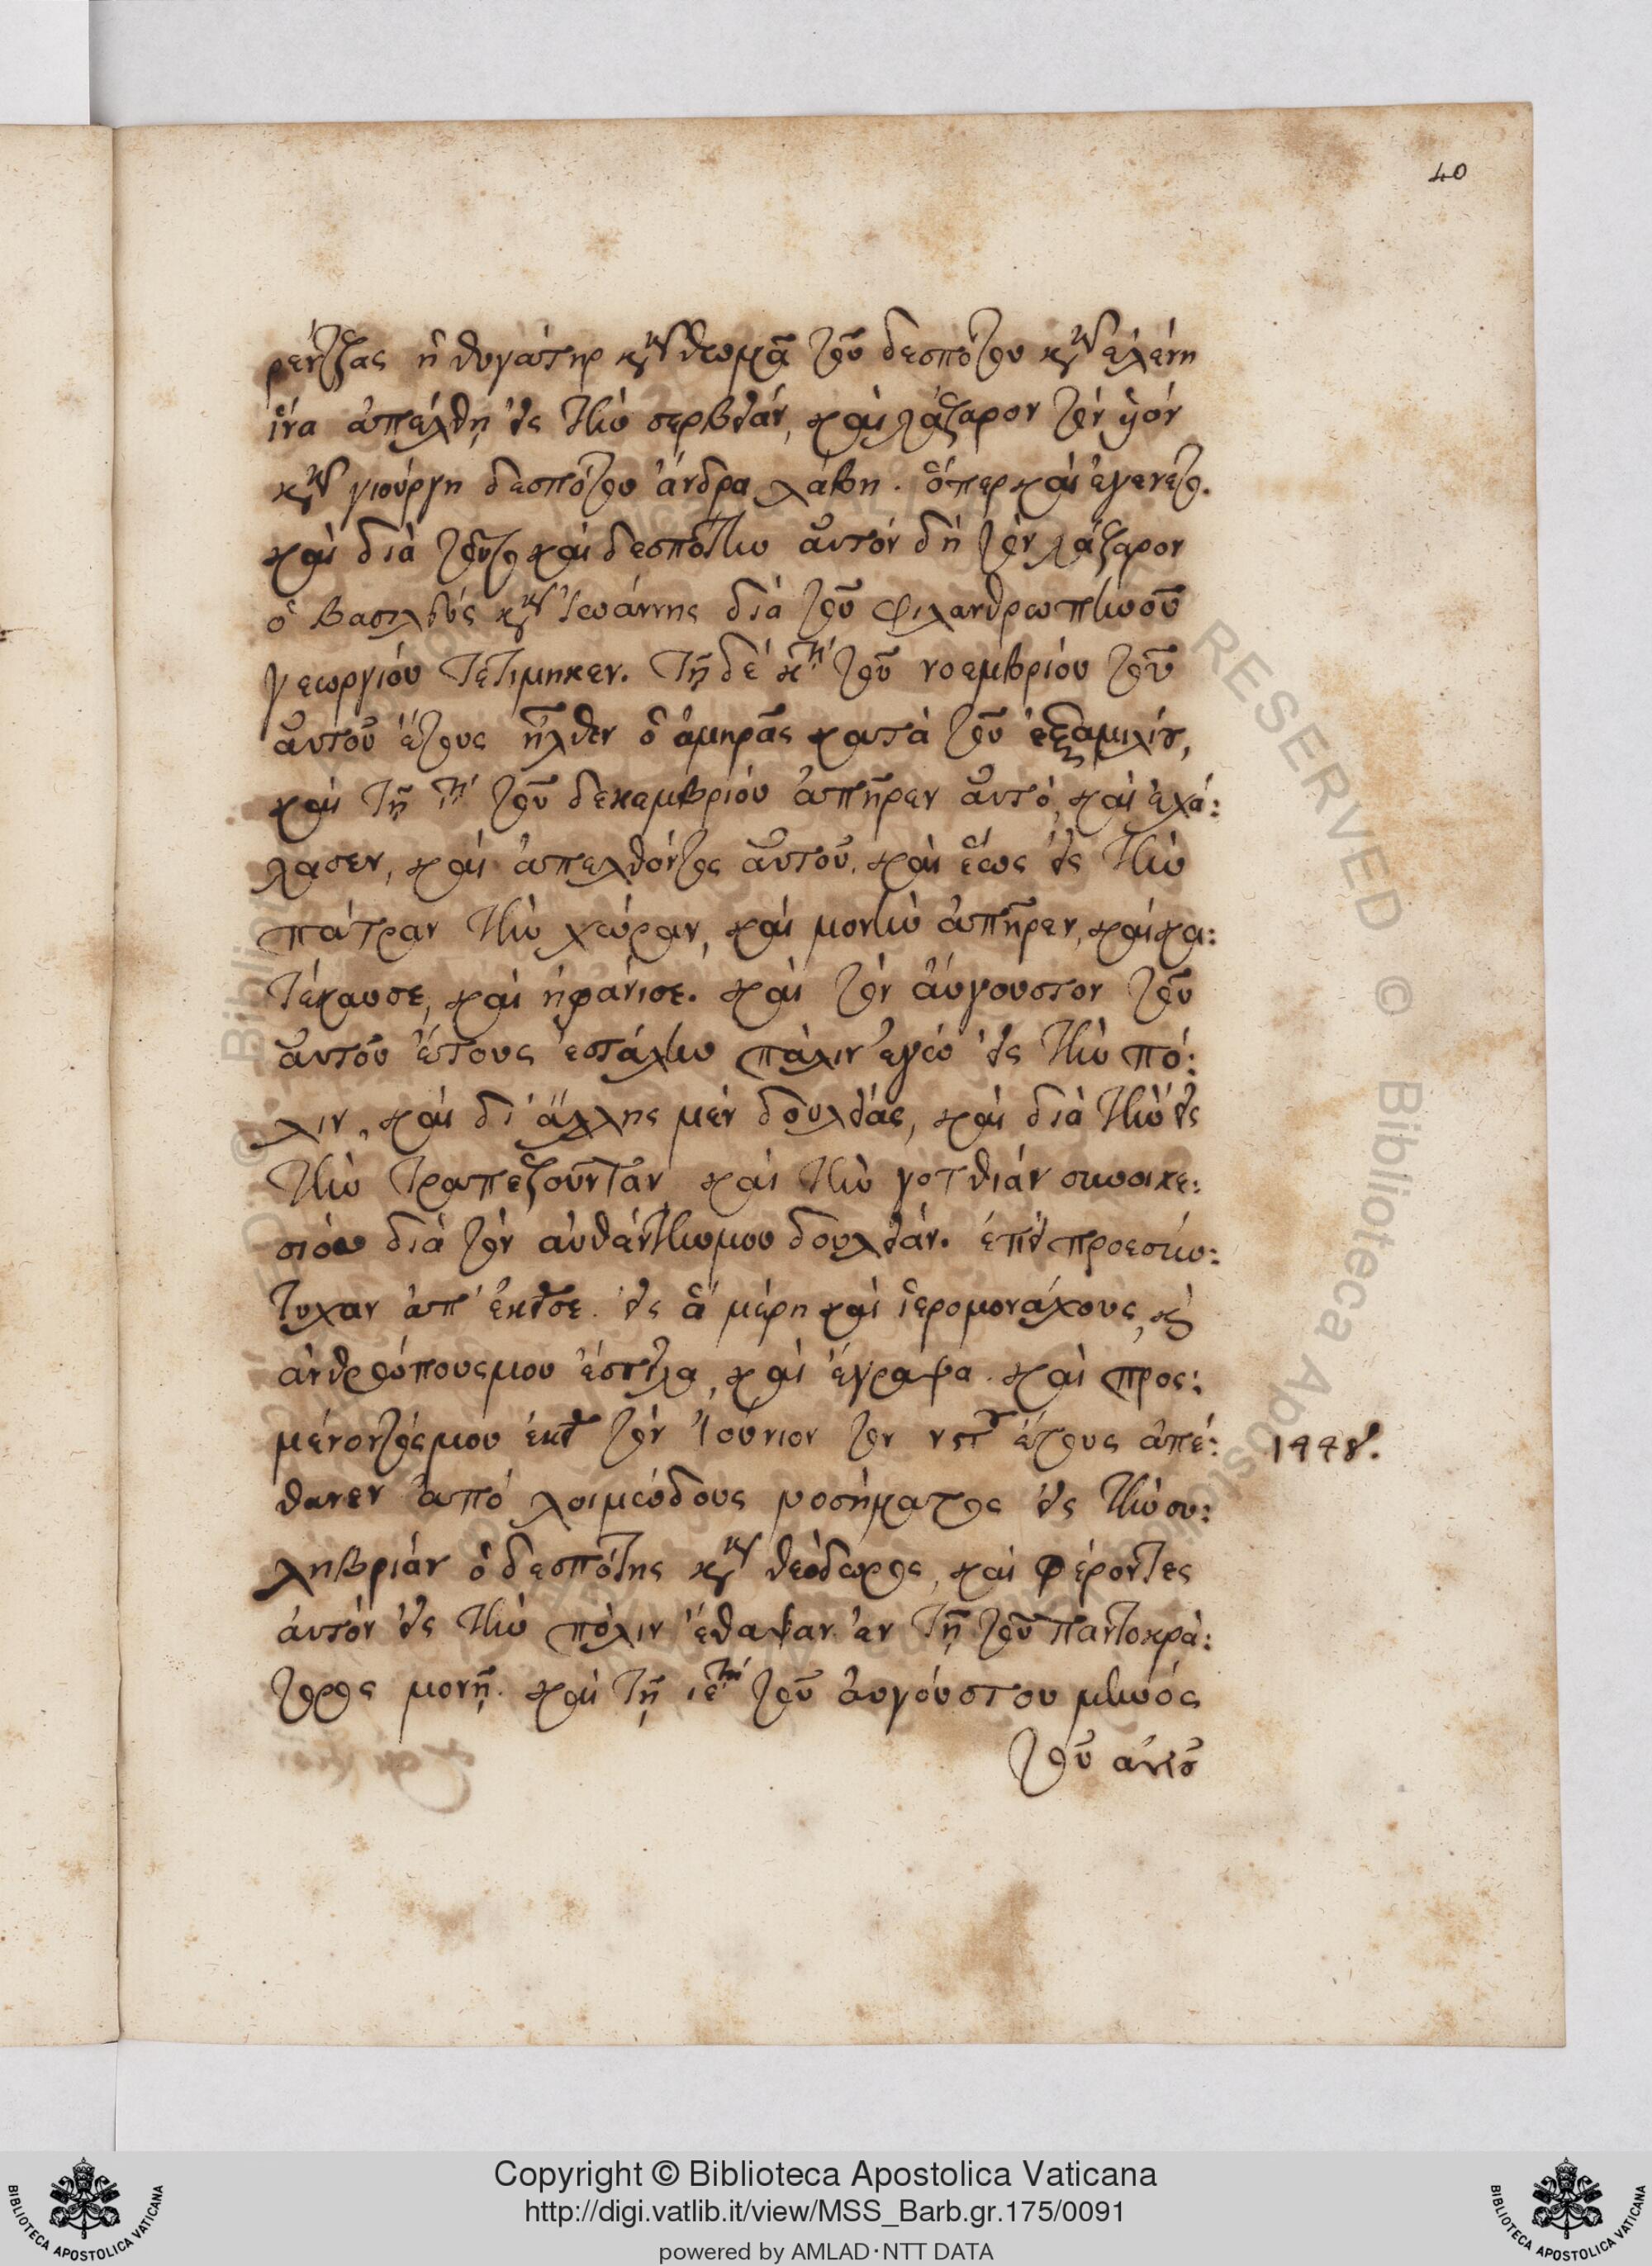 40
ρέντζας ἡ θυγάτηρ κυροῦ θωμᾶ τοῦ δεσπότου κυρὰ ἐλένη
ἵνα ἀπέλθη εἰς τὴν σερβείαν, καὶ λάζαρον τὸν ὑιόν
κυροῦ γιούργη δεσπότου ἄνδρα λάβη. ὅπερ καὶ ἐγενετο.
καὶ διὰ τοῦτο καὶ δεσπότην αὐτόν δὴ τὸν λάζαρον
ὁ βασιλεύς κυρ Ἰωάννης διὰ τοῦ φιλανθρωπινοῦ
γεωργίου τετίμηκεν. τῇ δὲ κ τῆ τοῦ νοεμβρίου τοῦ
αὐτοῦ ἔτους ἦλθεν ὁ ἀμηρᾶς κατὰ τοῦ ἑξαμιλίου,
καὶ τῇ ι τῆ τοῦ δεκεμβρίου ἀπῆρεν αὐτό, καὶ ἐχά:
λασεν, καὶ ἀπελθόντος αὐτοῦ. καὶ ἕως εἰς τὴν
πάτραν τὴν χώραν, καὶ μονὴν ἀπῆρεν, καὶ κα:
τέκαυσε, καὶ ἠφάνισε. καὶ τὸν ἀύγουστον τοῦ
αὐτοῦ ἔτους ἐστάλην πάλιν ἐγώ εἰς τὴν πό:
λιν, καὶ δι' ἄλλης μὲν δουλείας, καὶ διὰ τὴν εἰς
τὴν τραπεζοῦνταν καὶ τὴν γοτθίαν συνοικε:
σιόυ διὰ τὸν αὐθέντην μου δουλείαν. ἐπεὶ προεσυν:
τυχαν ἀπ' ἐκεῖσε. εἰς ἃ μέρη καὶ ἱερομονάχους, κ
ἀνθρώπους μου ἔστειλα, καὶ ἔγραψα. καὶ προς:
μένοντός μου ἐκεῖ τὸν Ἰούνιον τον νστ ἔτους ἀπέ:
1448.
θανεν ἀπό λοιμώδους νοσήματος εἰς τὴν συ:
ληβρίαν ὁ δεσπότης κυρ θεόδωρος, καὶ φέροντες
ἀυτόν εἰς τὴν πόλιν ἔθαψαν ἐν τῇ τοῦ παντοκρά:
τορος μονῇ. καὶ τῇ ιε τῆ τοῦ ἀυγούστου μηνός
τοῦ αὐτοῦ
Copyright © Biblioteca Apostolica Vaticana
http://digi.vatlib.it/view/MSS_Barb.gr.175/0091
powered by AMLAD·NTT DATA